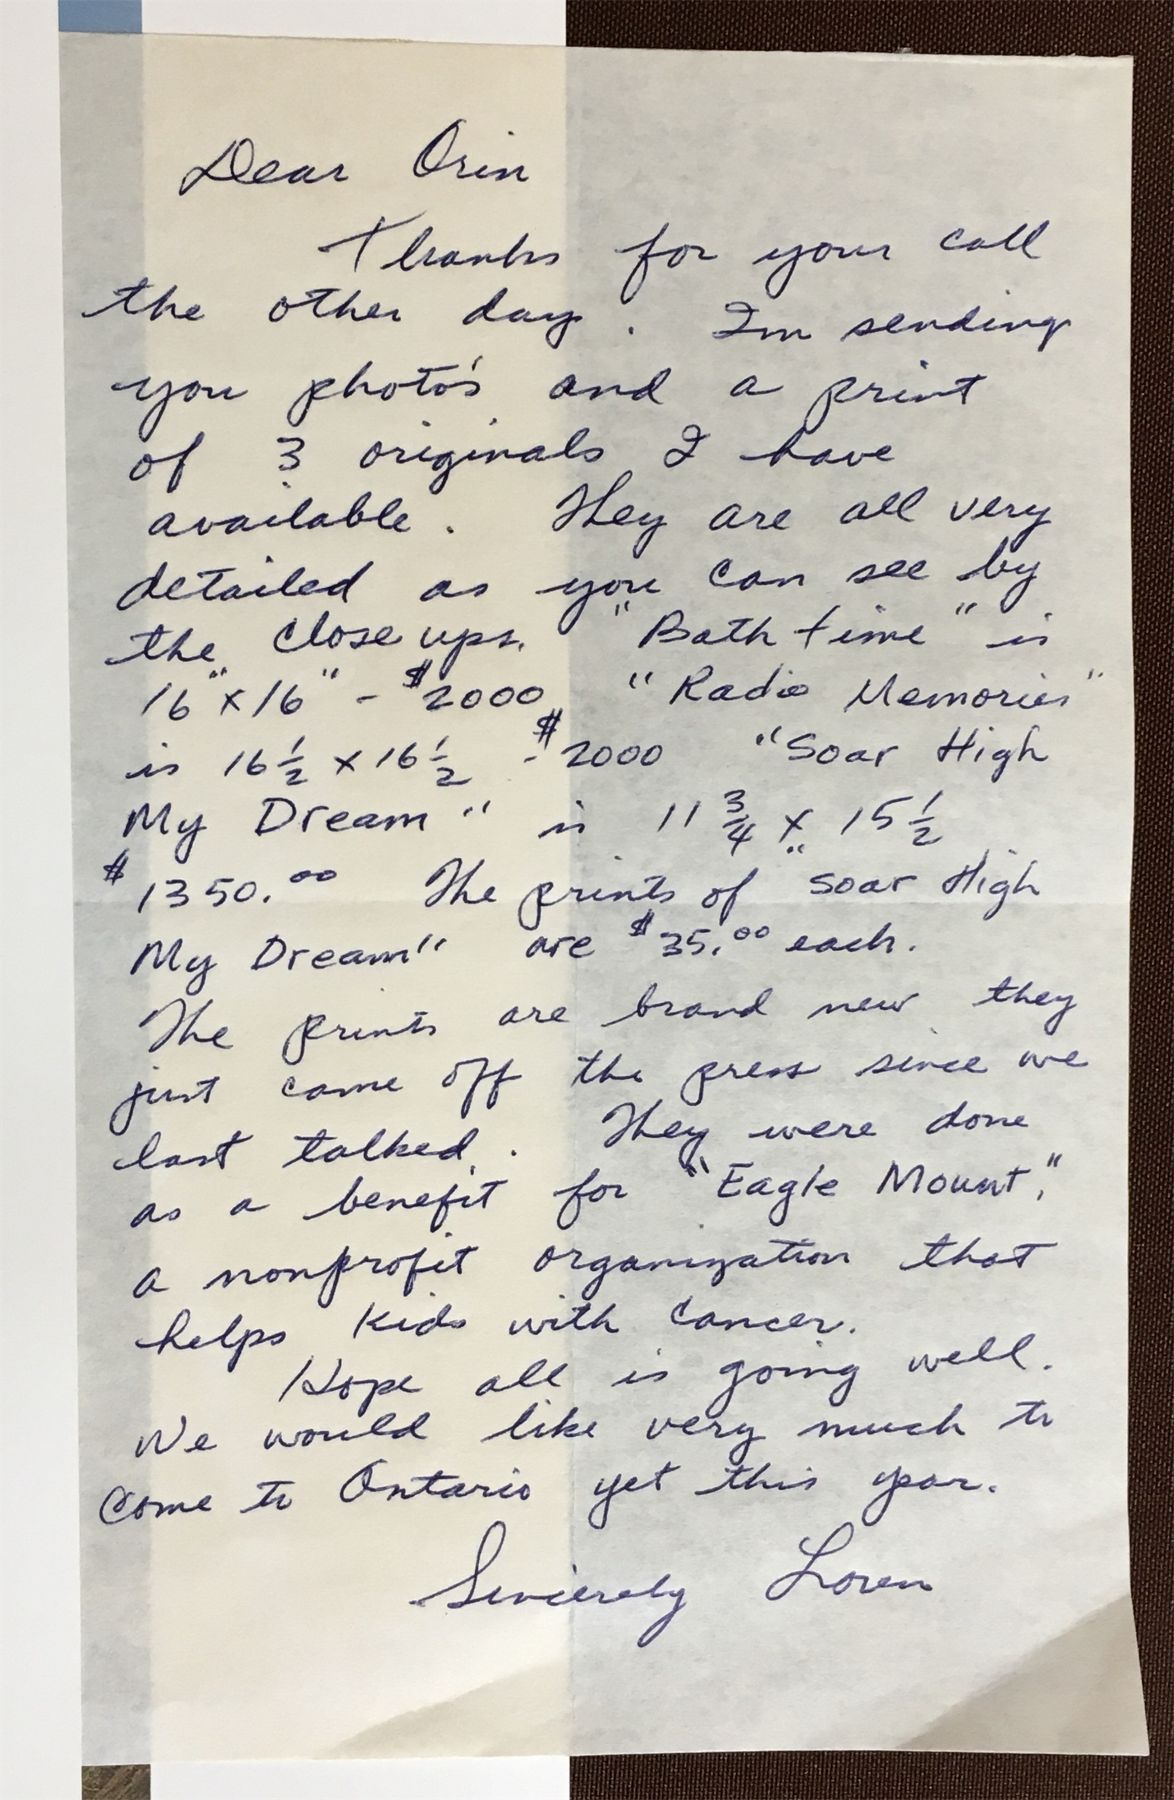 Dear Orin
Thanks for your call
the other day. Im sending
you photo's and a print
of 3 originals I have
available. They are all very
detailed as you can see by
the close ups. "Bath time" is
16" x 16" - $2000 "Radio Memories"
is 16 1/2 x 16 1/2 - $2000 "Soar High
My Dream" is 11 3/4 x 15 1/2
$1350.00 The prints of "Soar High
My Dream" are $35.00 each.
The prints are brand new they
just came off the press since we
last talked. They were done
as a benefit for "Eagle Mount",
a nonprofit organization that
helps kids with cancer.
Hope all is going well.
We would like very much to
come to Ontario yet this year.
Sincerely Loren